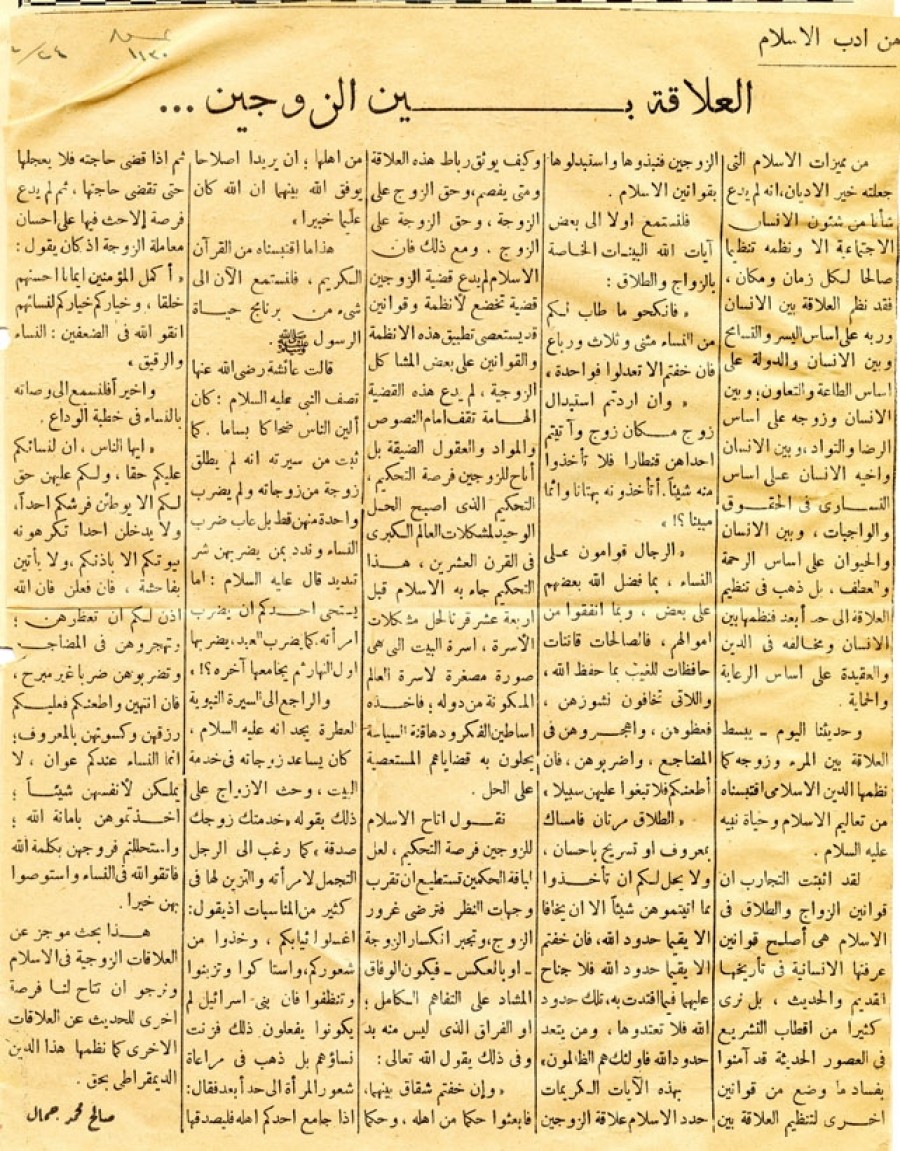 من ادب الاسلام
العلاقة بين الزوجين ...
من مميزات الاسلام التى
جعلته خير الاديان، انه لم يدع
شأنا من شئون الانسان
الاجتماعية الا ونظمه تنظيما
صالحا لكل زمان ومكان ،
فقد نظم العلاقة بين الانسان
وربه على اساس اليسر والتسامح
وبين الانسان والدولة على
اساس الطاعة والتعاون؛ وبين
الانسان وزوجه على اساس
الرضا والتواد، وبين الانسان
واخيه الانسان على اساس
التساوى فى الحقوق
والواجبات ، وبين الانسان
والحيوان على اساس الرحمة
والعطف ، بل ذهب فى تنظيم
العلاقة الى حد أبعد فنظمها بين
الانسان ومخالفه فى الدين
والعقيدة على اساس الرعاية
والحماية .
وحديثنا اليوم ـ يبسط
العلاقة بين المرء وزوجه كما
نظمها الدين الاسلامى اقتبسناه
من تعاليم الاسلام وحياة نبيه
عليه السلام .
لقد اثبتت التجارب ان
قوانين الزواج والطلاق فى
الاسلام هى أصلح قوانين
عرفتها الانسانية فى تأريخها
القديم والحديث ، بل نرى
كثيرا من اقطاب التشريع
فى العصور الحديثة قد آمنوا
بفساد ما وضع من قوانين
اخرى لتنظيم العلاقة بين
الزوجين فنبذوها واستبدلوها
بقوانين الاسلام .
فلنستمع اولا الى بعض
آيات الله البينات الخاصة
بالزواج والطلاق :
« فانكحو ما طاب لكم
من النساء مثنى وثلاث ورباع
فان خفتم الا تعدلوا فواحدة »
« وان اردتم استبدال
زوج مكان زوج وآتيتم
احداهن قنطارا فلا تأخذوا
منه شيئاً. أتأخذونه بهتانا واثما
مبينا ؟! »
« الرجال قوامون على
النساء ، بما فضل الله بعضهم
على بعض ، وبما انفقوا من
اموالهم ، فالصالحات قانتات
حافظات للغيب بما حفظ الله ،
واللاتى تخافون نشوزهن ،
فعظوهن ، واهجروهن فى
المضاجع ، واضربوهن ، فان
أطعنكم فلا تبغوا عليهن سبيلا »
« الطلاق مرتان فامساك
بمعروف او تسريح باحسان ،
ولا يحل لكم ان تأخذوا
مما آتيتموهن شيئاً الا ان يخافا
الا يقيما حدود الله، فان خفتم
الا يقيما حدود الله فلا جناح
عليهما فيما افتدت به، تلك حدود
الله فلا تعتدوها ، ومن يتعد
حدود الله فاولئك هم الظالمون »
بهذه الآيات الكريمات
حدد الاسلام علاقة الزوجين
وكيف يوثق رباط هذه العلاقة
ومتى يفصم، وحق الزوج على
الزوجة ، وحق الزوجة على
الزوج . ومع ذلك فان
الاسلام لم يدع قضية الزوجين
قضية تخضع لأنظمة وقوانين
قد يستعصى تطبيق هذه الانظمة
والقوانين على بعض المشاكل
الزوجية ، لم يدع هذه القضية
الهامة تقف امام النصوص
والمواد والعقول الضيقة بل
أتاح للزوجين فرصة التحكيم ،
التحكيم الذى اصبح الحل
الوحيد لمشكلات العالم الكبرى
فى القرن العشرين ، هذا
التحكيم جاء به الاسلام قبل
اربعة عشر قرنا لحل مشكلات
الأسرة ، اسرة البيت التى هى
صورة مصغرة لاسرة العالم
المكونة من دوله ؛ فاخذه
اساطين الفكر ودهاقنة السياسة
يحلون به قضاياهم المستعصية
على الحل .
نقول اتاح الاسلام
للزوجين فرصة التحكيم ، لعل
لباقة الحكمين تستطيع ان تقرب
وجهات النظر فترضى غرور
الزوج، وتجبر انكسار الزوجة
ـ او بالعكس ـ فيكون الوفاق
المشاد على التفاهم الكامل ؛
او الفراق الذى ليس منه بد
وفى ذلك يقول الله تعالى :
« وإن خفتم شقاق بينهما،
فابعثوا حكما من اهله ، وحكما
من اهلها ؛ ان يريدا اصلاحا
يوفق الله بينهما ان الله كان
عليما خبيرا »
هذا ما اقتبسناه من القرآن
الكريم ، فلنستمع الآن الى
شىء من برنامج حياة
الرسول ﷺ .
قالت عائشة رضى الله عنها
تصف النبى عليه السلام : كان
ألين الناس ضحاكا بساما . كما
ثبت من سيرته انه لم يطلق
زوجة من زوجاته ولم يضرب
واحدة منهن قط بل عاب ضرب
النساء وندد بمن يضربهن شر
تنديد قال عليه السلام : اما
يستحى احدكم ان يضرب
امرأته كما يضرب العبد، يضربها
اول النهار ثم يجامعها آخره ؟! »
والراجع الى السيرة النبوية
العطرة يجد انه عليه السلام ،
كان يساعد زوجاته فى خدمة
البيت ، وحث الازواج على
ذلك بقوله «خدمتك زوجك
صدقة » كما رغب الى الرجل
التجمل لامرأته والتزين لها فى
كثير من المناسبات اذ يقول :
اغسلوا ثيابكم ، وخذوا من
شعوركم، واستاكوا وتزينوا
وتنظفوا فان بنى اسرائيل لم
يكونوا يفعلون ذلك فزنت
نساؤهم بل ذهب فى مراعاة
شعور المرأة الى حد أبعد فقال :
اذا جامع احدكم اهله فليصدقها
ثم اذا قضى حاجته فلا يعجلها
حتى تقضى حاجتها ، ثم لم يدع
فرصة إلا حث فيها على احسان
معاملة الزوجة اذ كان يقول :
« أكمل المؤمنين ايمانا احسنهم
خلقا ، وخياركم خياركم لنسائهم
اتقوا الله فى الضعفين : النساء
والرقيق »
واخيرا فلنسمع الى وصاته
بالنساء فى خطبة الوداع .
« ايها الناس ، ان لنسائكم
عليكم حقا ، ولكم عليهن حق
لكم الا يوطئن فرشكم احداً،
ولا يدخلن احدا تكرهونه
بيوتكم الا باذنكم ، ولا يأتين
بفاحشة ، فان فعلن فان الله
اذن لكم ان تعظوهن ؛
وتهجروهن فى المضاجع
وتضربوهن ضربا غير مبرح ،
فان انتهين واطعنكم فعليكم
رزقهن وكسوتهن بالمعروف؛
انما النساء عندكم عوان ، لا
يملكن لأنفسهن شيئاً ؛
اخذتموهن بامانة الله ؛
واستحللتم فروجهن بكلمة الله
فاتقوا الله فى النساء واستوصوا
بهن خيرا .
هذا بحث موجز عن
العلاقات الزوجية فى الاسلام
ونرجو ان تتاح لنا فرصة
اخرى للحديث عن العلاقات
الاخرى كما نظمها هذا الدين
الديمقراطى بحق .
صالح محمد جمال